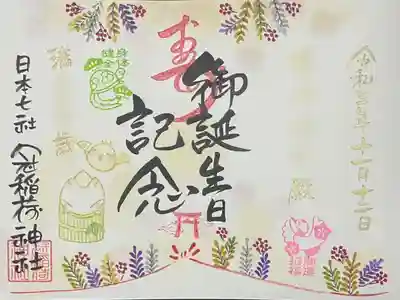 令和
年十一月十二日
寿
御誕生日
記念
身体
健全
日本七社 冠稲荷神社